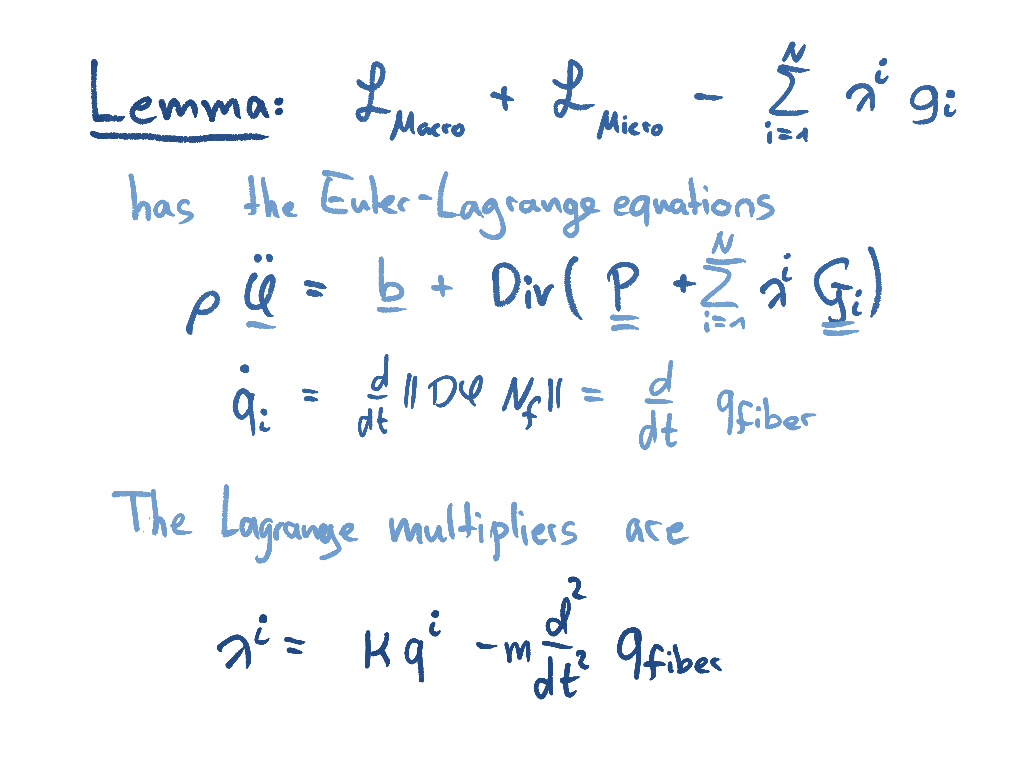 Lemma: ℒ_Macro + ℒ_Micro − ∑_{i=1}^{N} λ^i g_i
has the Euler-Lagrange equations
ρ φ̈ = b + Div( P + ∑_{i=1}^{N} λ^i G_i )
q̇_i = d/dt ‖Dφ N_f‖ = d/dt q_fiber
The Lagrange multipliers are
λ^i = K q^i − m d²/dt² q_fiber